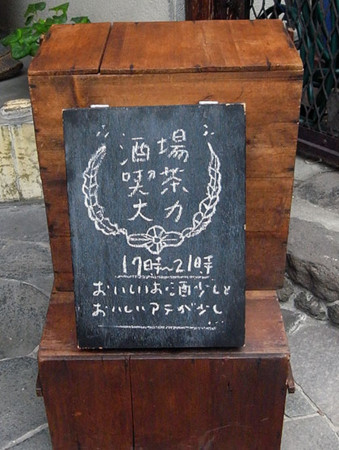 酒場
喫茶
大力
17時〜21時
おいしいお酒少しと
おいしいアテが少し